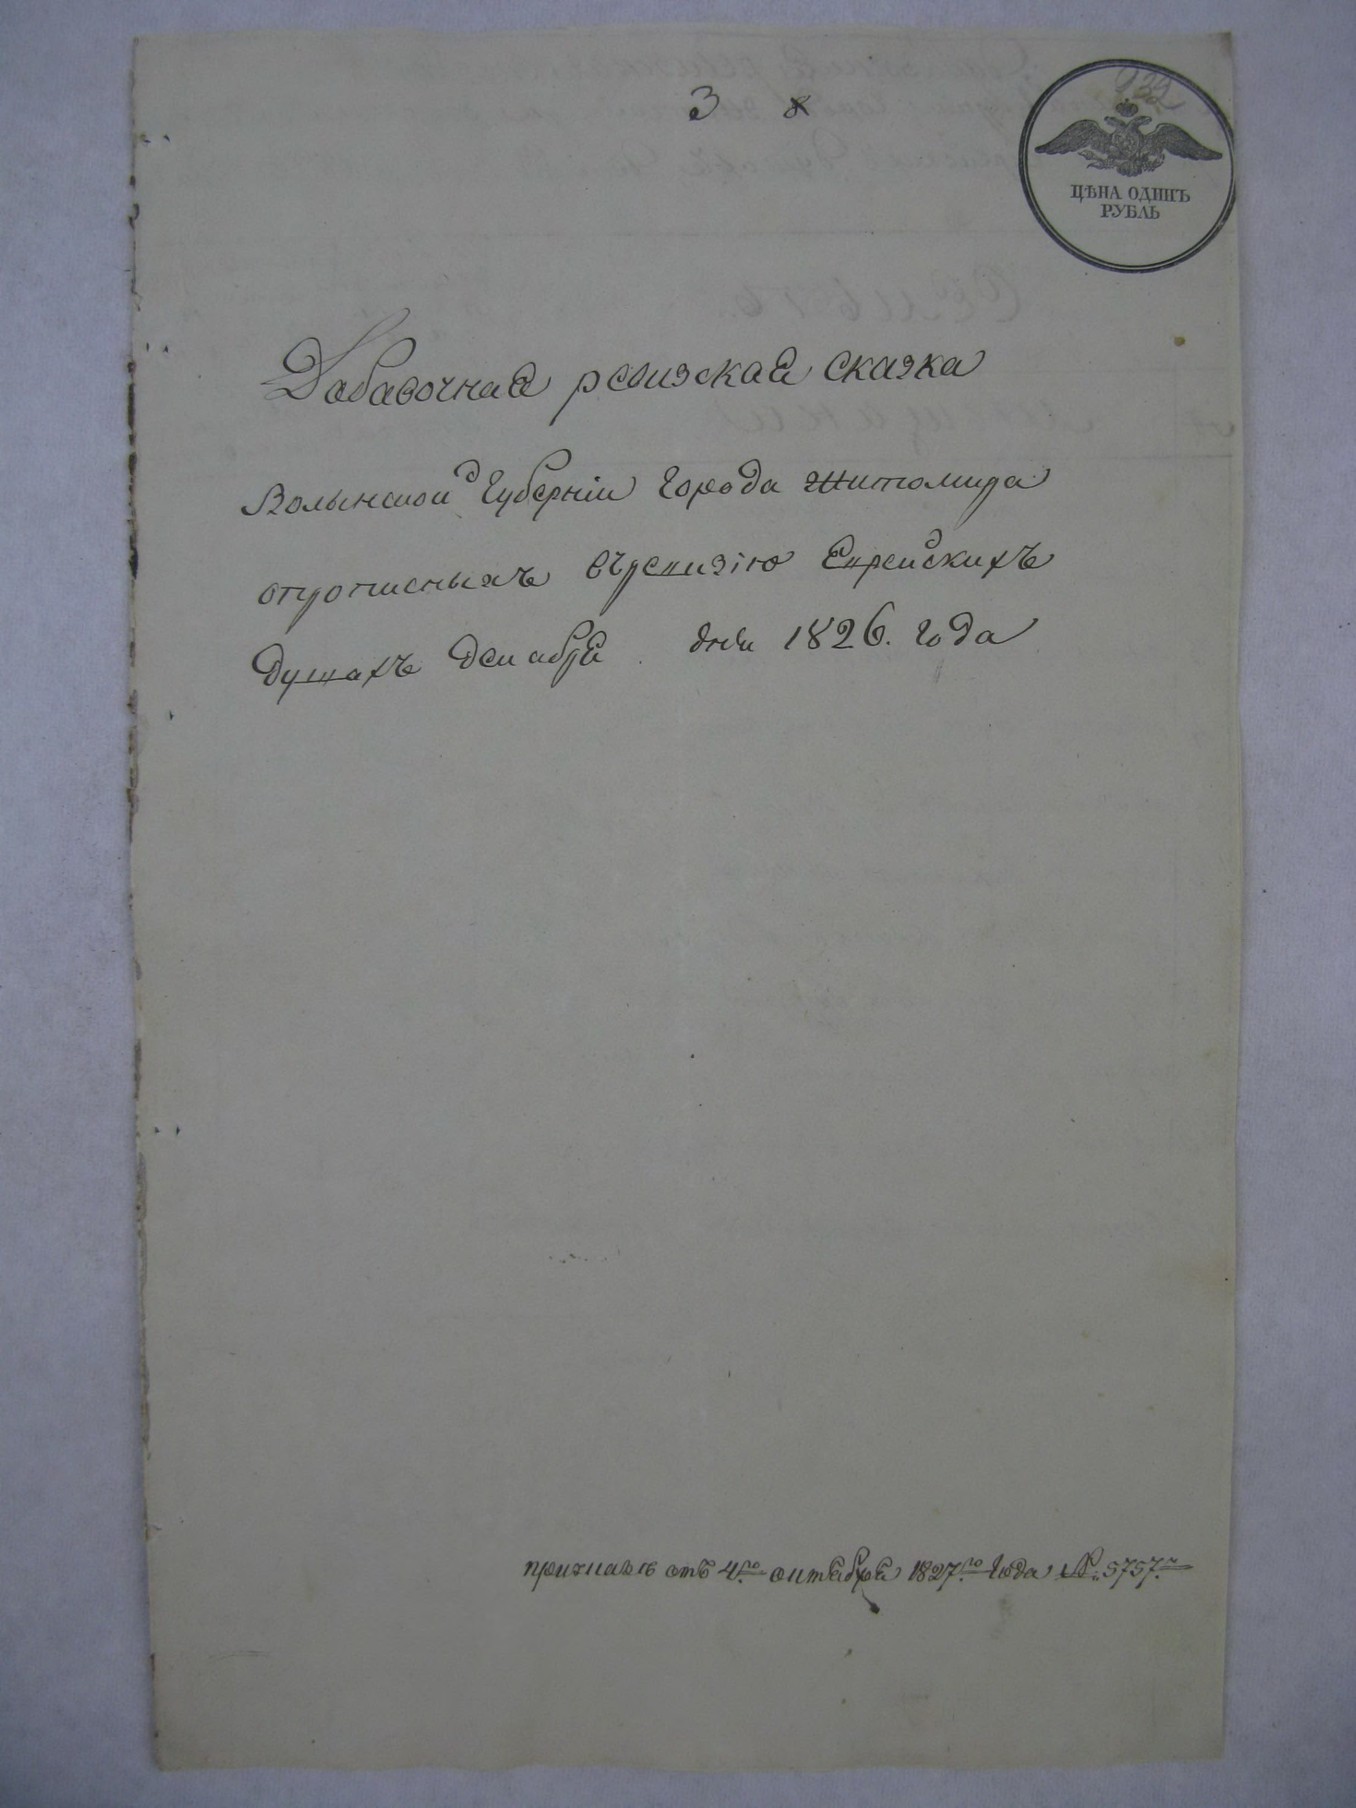 3
932
ЦѢНА ОДИНЪ
РУБЛЬ
Дабавочная ревизская сказка
Волынской Губернии Города Житомира
опрописныхъ въревизію Еврейскихъ
душахъ декабря дня 1826. Года
при указе отъ 4.го октября 1827.го Года №. 5757.м